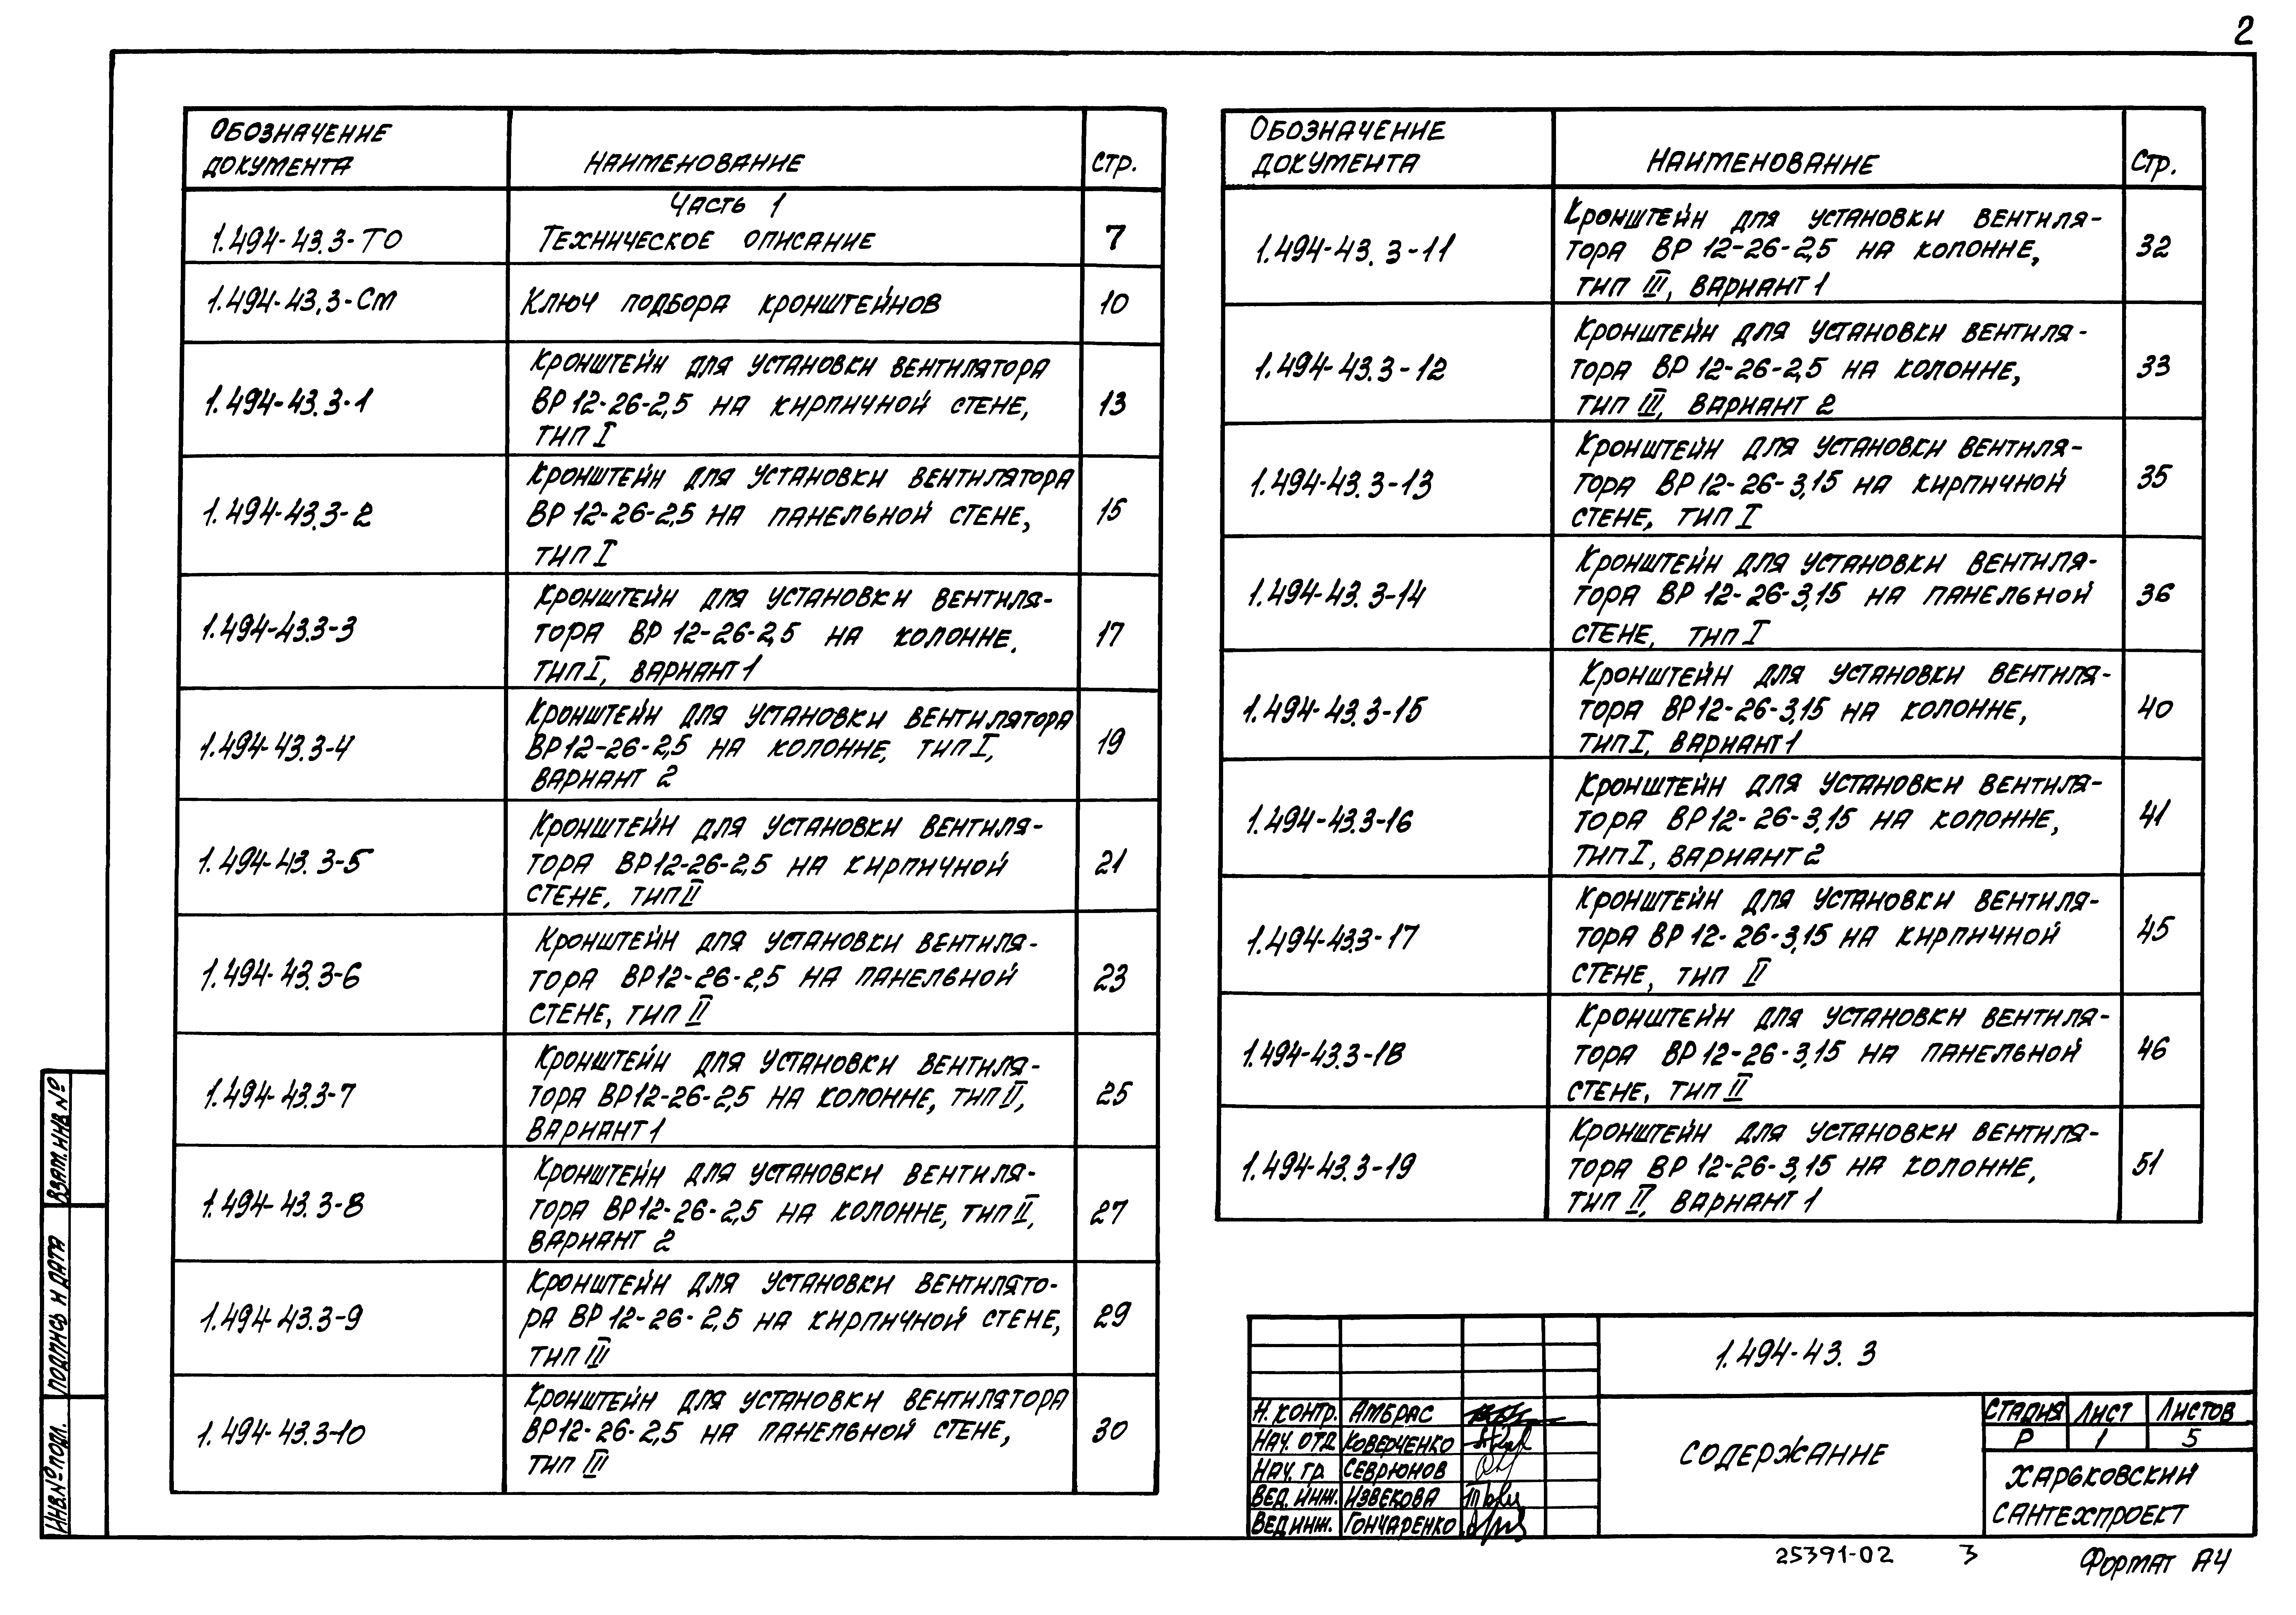 2
Обозначение
документа
Наименование
Стр.
Часть 1
1.494-43.3-ТО
Техническое описание
7
1.494-43.3-СМ
Ключ подбора кронштейнов
10
1.494-43.3-1
Кронштейн для установки вентилятора
ВР 12-26-2,5 на кирпичной стене,
тип I
13
1.494-43.3-2
Кронштейн для установки вентилятора
ВР 12-26-2,5 на панельной стене,
тип I
15
1.494-43.3-3
Кронштейн для установки вентиля-
тора ВР 12-26-2,5 на колонне.
тип I, вариант 1
17
1.494-43.3-4
Кронштейн для установки вентилятора
ВР 12-26-2,5 на колонне, тип I,
вариант 2
19
1.494-43.3-5
Кронштейн для установки вентиля-
тора ВР 12-26-2,5 на кирпичной
стене, тип II
21
1.494-43.3-6
Кронштейн для установки вентиля-
тора ВР 12-26-2,5 на панельной
стене, тип II
23
1.494-43.3-7
Кронштейн для установки вентиля-
тора ВР 12-26-2,5 на колонне, тип II,
вариант 1
25
1.494-43.3-8
Кронштейн для установки вентиля-
тора ВР 12-26-2,5 на колонне, тип II,
вариант 2
27
1.494-43.3-9
Кронштейн для установки вентилято-
ра ВР 12-26-2,5 на кирпичной стене,
тип III
29
1.494-43.3-10
Кронштейн для установки вентилятора
ВР 12-26-2,5 на панельной стене,
тип III
30
Обозначение
документа
Наименование
Стр.
1.494-43.3-11
Кронштейн для установки вентиля-
тора ВР 12-26-2,5 на колонне,
тип III, вариант 1
32
1.494-43.3-12
Кронштейн для установки вентиля-
тора ВР 12-26-2,5 на колонне,
тип III, вариант 2
33
1.494-43.3-13
Кронштейн для установки вентиля-
тора ВР 12-26-3,15 на кирпичной
стене, тип I
35
1.494-43.3-14
Кронштейн для установки вентиля-
тора ВР 12-26-3,15 на панельной
стене, тип I
36
1.494-43.3-15
Кронштейн для установки вентиля-
тора ВР 12-26-3,15 на колонне,
тип I, вариант 1
40
1.494-43.3-16
Кронштейн для установки вентиля-
тора ВР 12-26-3,15 на колонне,
тип I, вариант 2
41
1.494-43.3-17
Кронштейн для установки вентиля-
тора ВР 12-26-3,15 на кирпичной
стене, тип II
45
1.494-43.3-18
Кронштейн для установки вентиля-
тора ВР 12-26-3,15 на панельной
стене, тип II
46
1.494-43.3-19
Кронштейн для установки вентиля-
тора ВР 12-26-3,15 на колонне,
тип II, вариант 1
51
Взам. инв №
Подпись и дата
Инв.№ подл.
1.494-43.3
Н. контр. Амбрас
Нач. отд. Коверченко
Нач. гр. Севрюнов
Вед. инж. Извекова
Вед инж. Гончаренко
Содержание
Стадия Лист Листов
Р 1 5
Харьковский
Сантехпроект
25391-02 3
Формат А4